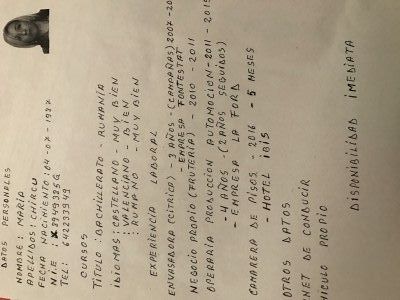 DATOS PERSONALES
NOMBRE: MARIA
APELLIDOS: CHIRCU
FECHA NACIMIENTO: 04-07-1987
N.I.E.
TEL:
CURSOS
TITULO: BACHILLERATO - RUMANÍA
IDIOMAS: CASTELLANO - MUY BIEN
: VALENCIANO - BIEN
: RUMANO - MUY BIEN
EXPERIENCIA LABORAL
ENVASADORA (CITRICO) - 3 AÑOS - (CAMPAÑAS) 2007-20
EMPRESA FONTESTAT
NEGOCIO PROPIO (FRUTERÍA) - 2010 - 2011
OPERARIA PRODUCCION AUTOMOCION - 2011 - 2015
- 4 AÑOS - (2 AÑOS SEGUIDOS)
- EMPRESA LA FORD
CAMARERA DE PISOS - 2016 - 5 MESES
- HOTEL IBIS
OTROS DATOS
NET DE CONDUCIR
HICULO PROPIO
DISPONIBILIDAD IMEDIATA